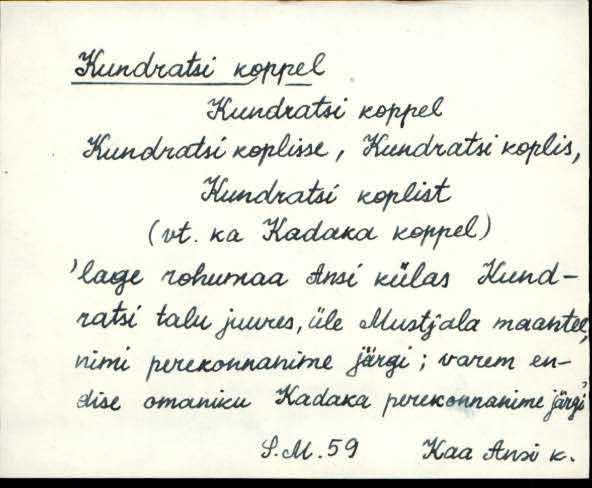 Kundratsi koppel
Kundratsi koppel
Kundratsi koplisse, Kundratsi koplis,
Kundratsi koplist
(vt. ka Kadaka koppel)
'lage rohumaa Ansi külas Kund-
ratsi talu juures, üle Mustjala maantee,
nimi perekonnanime järgi; varem en-
dise omaniku Kadaka perekonnanime järgi'
S.M.59 Kaa Ansi k.